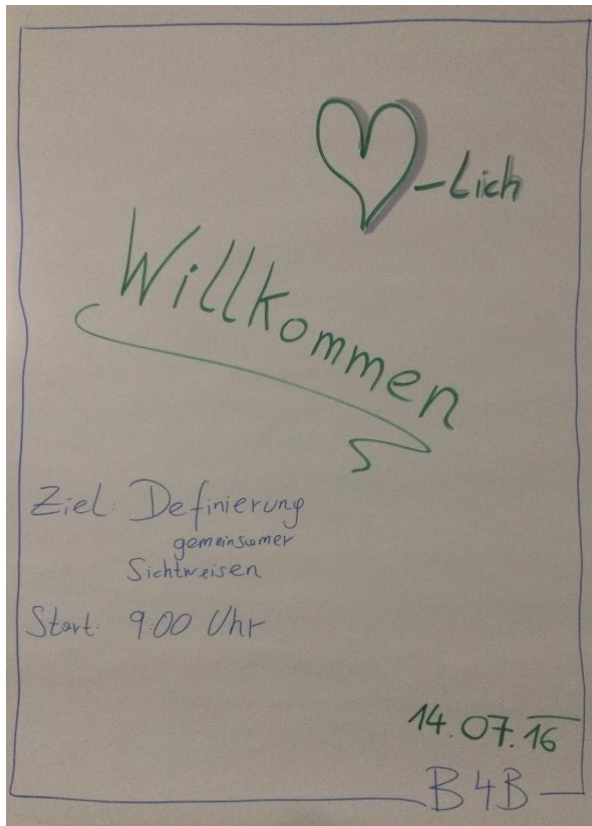 -Lich
Willkommen
Ziel: Definierung
gemeinsamer
Sichtweisen
Start: 9:00 Uhr
14.07.16
B4B